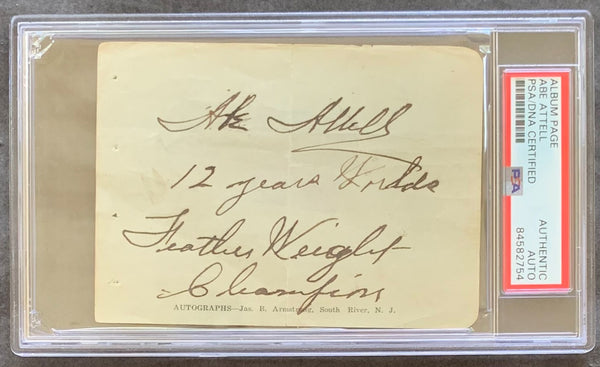 Abe Attell
12 years Worlds
Feather Weight
Champion
AUTOGRAPHS—Jas. E. Armstrong, South River, N. J.
ALBUM PAGE
ABE ATTELL
PSA/DNA CERTIFIED
PSA
AUTHENTIC
AUTO
84582754